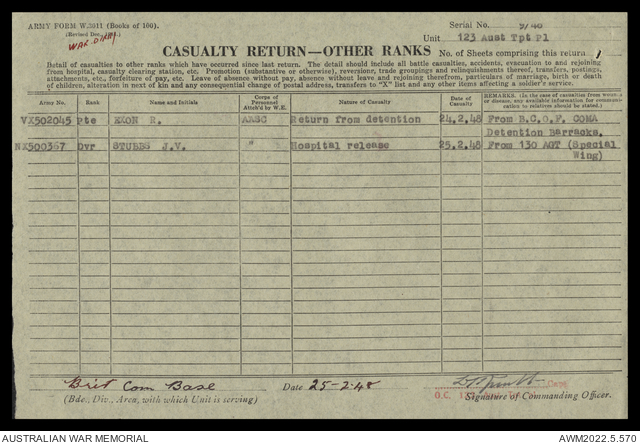 ARMY FORM W.3011 (Books of 100).
WAR DIARY
Serial No. 9/40
Unit 123 Aust Tpt Pl
CASUALTY RETURN—OTHER RANKS
No. of Sheets comprising this return 1
Detail of casualties to other ranks which have occurred since last return. The detail should include all battle casualties, accidents, evacuation to and rejoining
from hospital, casualty clearing station, etc. Promotion (substantive or otherwise), reversions, trade groupings and relinquishments thereof, transfers, postings,
attachments, etc., forfeiture of pay, etc. Leave of absence without pay, absence without leave and rejoining therefrom, particulars of marriage, birth or death
of children, alteration in next of kin and any consequential change of postal address, transfers to "X" list and any other items affecting a soldier's service.
Army No. Rank Name and Initials Corps of Personnel Attch'd by W.E. Nature of Casualty Date of Casualty REMARKS. (In the case of casualties from wounds or disease, any available information for communication to relatives should be stated.)
VX502045 Pte EXON R. AASC Return from detention 24.2.48 From B.C.O.F. COMA
Detention Barracks.
NX500367 Dvr STUBBS J.V. " Hospital release 25.2.48 From 130 AGT (Special
Wing)
Brit Com Base Date 25-2-48
(Bde., Div., Area, with which Unit is serving) O.C. Signature of Commanding Officer.
AUSTRALIAN WAR MEMORIAL AWM2022.5.570